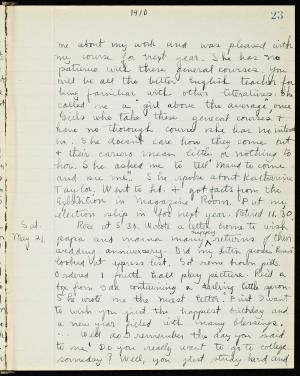 1910
23
me about my work and was pleased with
my course for next year. She has no
patience with these general courses. You
will be all the better English teacher for
being familiar with other literatures. She
called me a "girl above the average" one.
Girls who take these general courses &
have no thorough course she has no interest
in. She doesn't care how they come out
& their careers mean little or nothing to
her. She asked me to "tell Mama to come
and see me". She spoke about Katharine
Taylor. Went to lib. & got facts from the
in Magazine Room. Put my
election slip in for next year. Retired 11.30.
Sat.
May 21.
Rose at 5.30. Wrote a letter home to wish
papa and mama many happy returns of their
wedding anniversary. Did my Latin prose. Then
looked at
Ordered 1 Fourth hall play picture. Rec'd a
box from Sade containing a darling little apron.
She wrote me the nicest letter. First I want
to wish you just the happiest birthday and
a new year filled with many blessings.
... Well do I remember the day you said
to me "Do you really want to go to college
someday? Well, you just study hard and